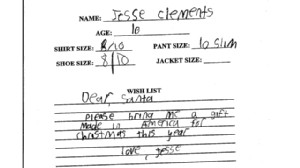 NAME: Jesse Clements
AGE: 10
SHIRT SIZE: 8/10 PANT SIZE: 10 Slim
SHOE SIZE: 8/10 JACKET SIZE:
WISH LIST
Dear, Santa
Please bring me a gift
made in America for
christmas this year
love, Jesse